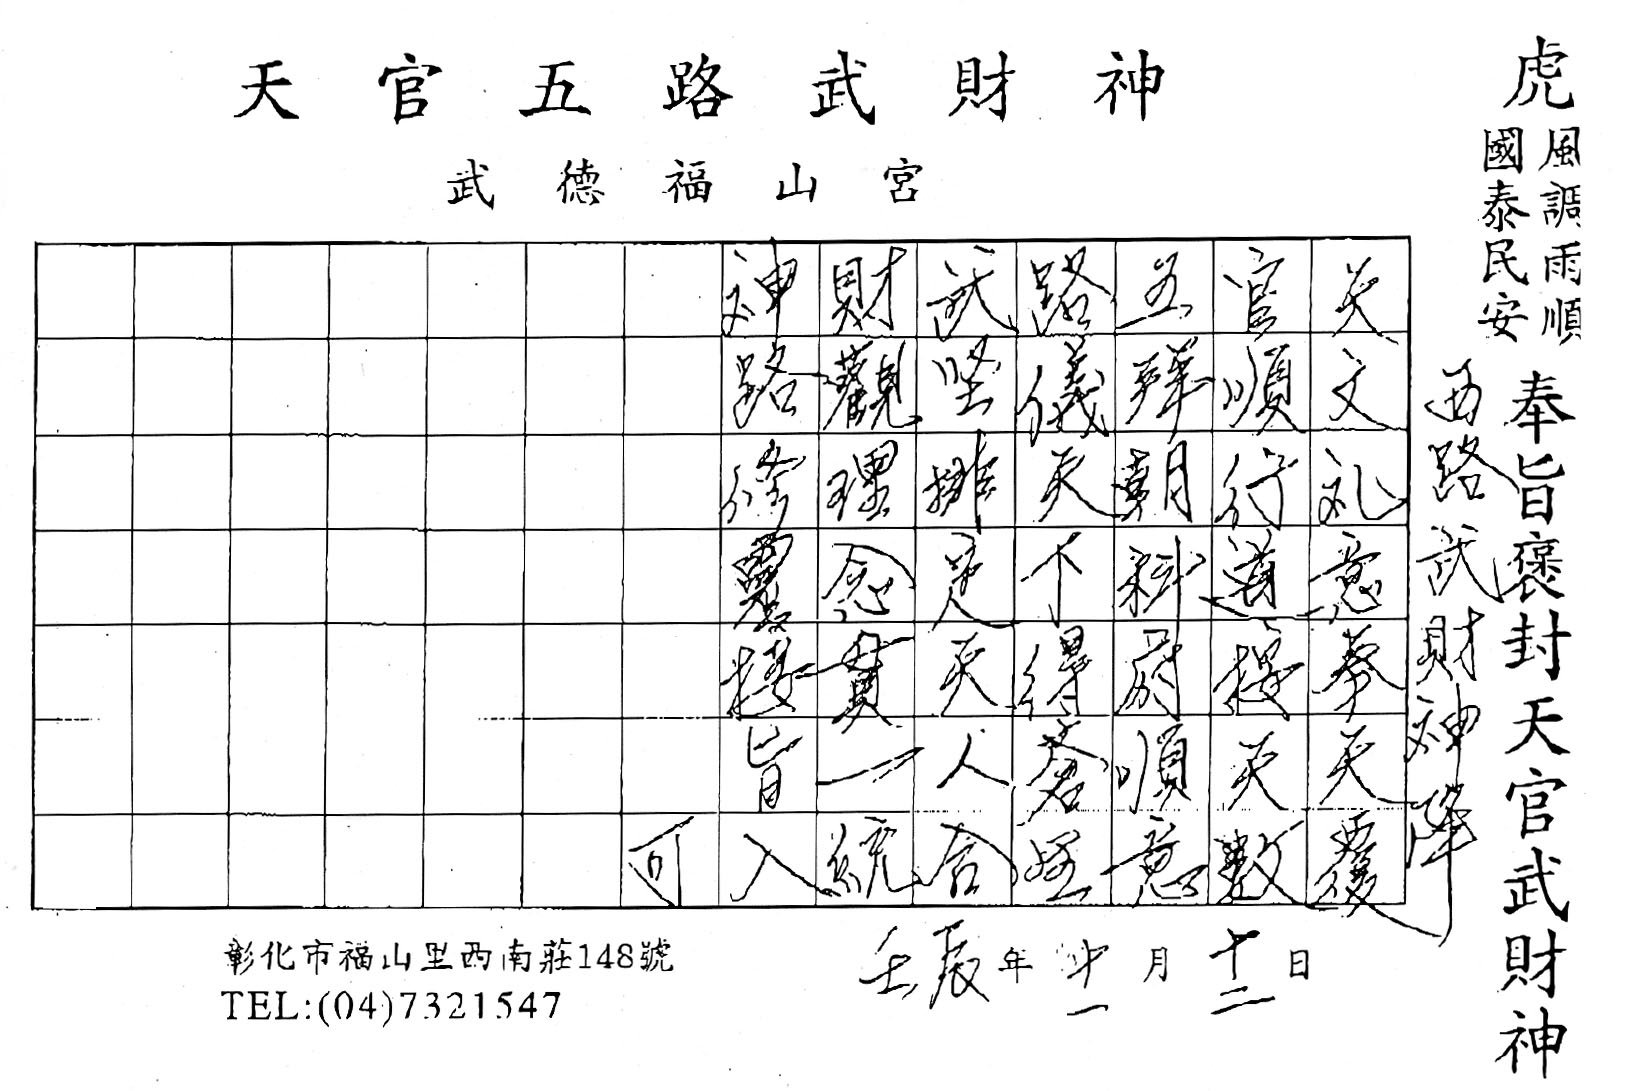 天官五路武財神
武德福山宮
虎
風調雨順
國泰民安
奉旨褒封天官武財神
西路武財神降
天文礼意奉天覆
官順行道授天數
五朝科順意
路儀天下得
武堅排天人合
財觀理念貫一統
神路修靈接旨入
可
壬辰年十一月十二日
彰化市福山里西南莊148號
TEL:(04)7321547